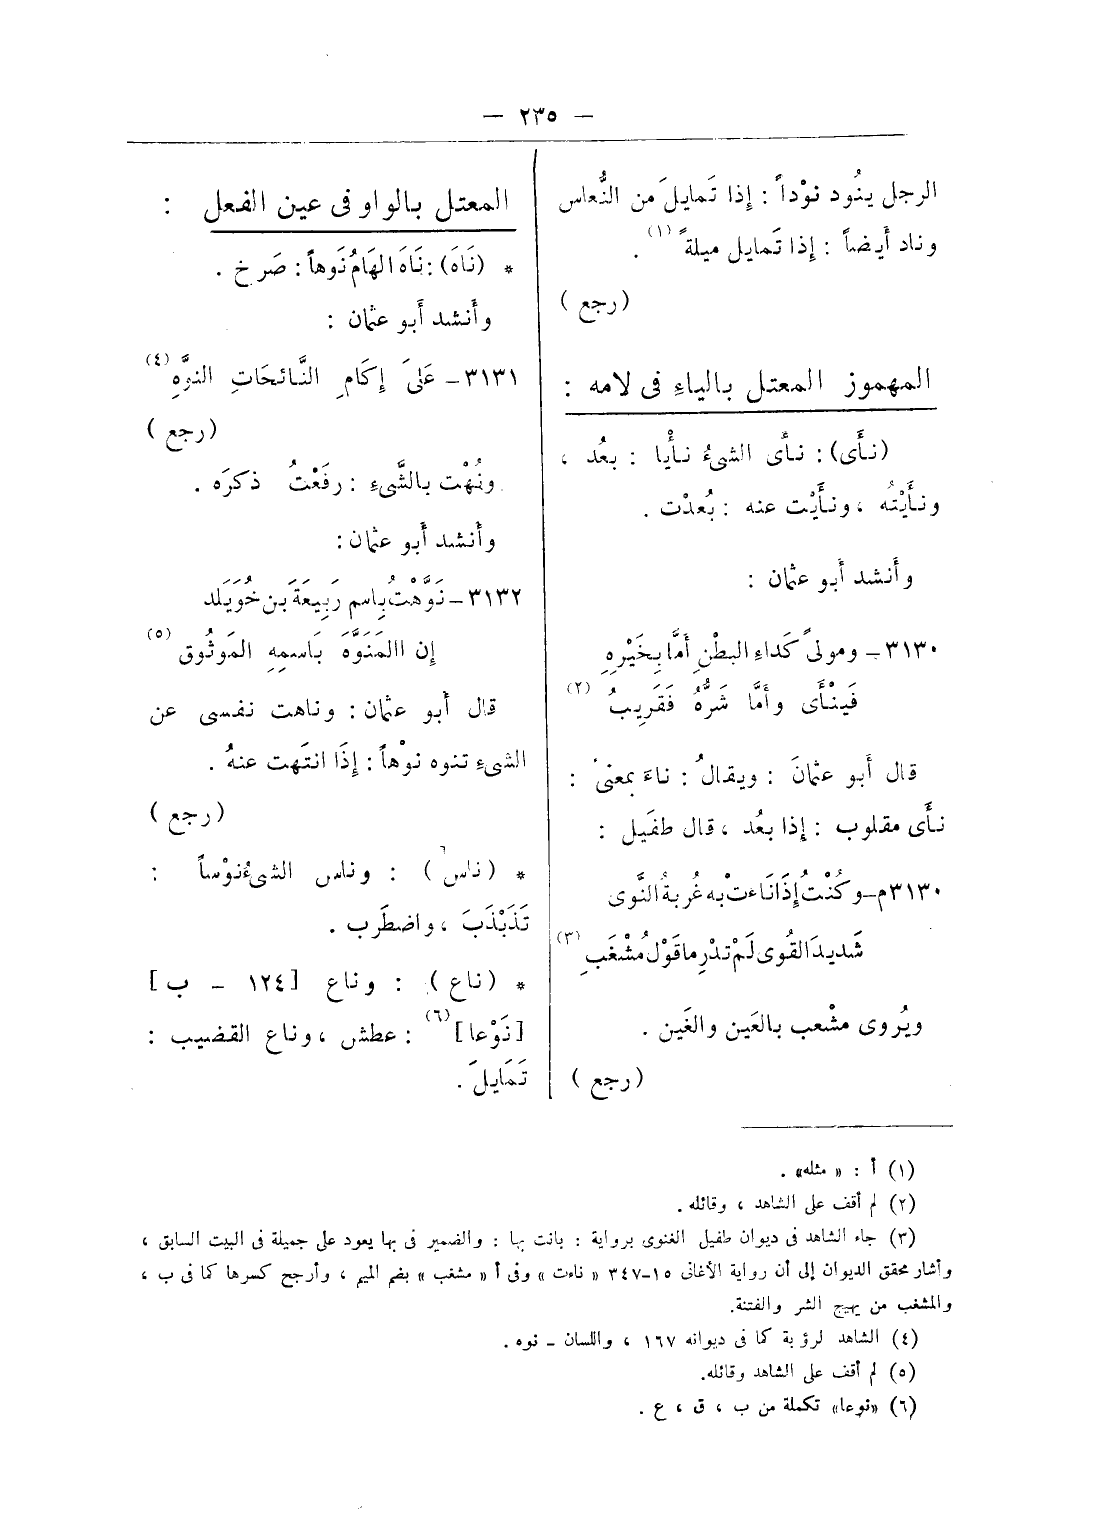 — ٢٣٥ —
الرجل ينُود نوْداً : إذا تَمايلَ من النُّعاس
وناد أيضاً : إذا تَمايل ميلةً (١) .
( رجع )
المهموز المعتل بالياء فى لامه :
(نأَى) : نأَى الشىءُ نأْيا : بعُد ،
ونأَيْتُه ، ونأَيْت عنه : بُعدْت .
وأَنشد أبو عثمان :
٣١٣٠ – ومولىً كَداءِ البطْنِ أمَّا بِخَيْرِهِ
فَينْأَى وأَمَّا شَرُّهُ فَقَرِيبُ (٢)
قال أَبو عثمانَ : ويقالُ : ناءَ بمعنى :
نأَى مقلوب : إذا بعُد ، قال طفَيل :
٣١٣٠م – وكُنْتُ إِذَا نَاءتْ به غُربةُ النَّوى
شَديدَ القُوى لَمْ تدْرِ ما قَوْل مُشْغَبِ (٣)
ويُروى مشْعب بالعَين والغَين .
( رجع )
المعتل بالواو فى عين الفعل :
* (نَاهَ) : نَاهَ الهَامُ نَوهاً : صَرخ .
وأَنشد أَبو عثمان :
٣١٣١ – عَلَى إِكَامِ النَّائحَاتِ النوَّهِ (٤)
( رجع )
ونُهْت بالشَّىءِ : رفَعْتُ ذكرَه .
وأَنشد أَبو عثمان :
٣١٣٢ – نَوَّهْتُ بِاسمِ رَبِيعَةَ بن خُوَيلد
إن االمَنَوَّهَ بَاسمِهِ المَوثُوق (٥)
قال أَبو عثمان : وناهت نفسى عن
الشىءِ تنوه نوْهاً : إِذَا انتَهت عنهُ .
( رجع )
* (ناس) : وناس الشىءُ نوْساً :
تَذَبْذَبَ ، واضطَرب .
* (ناع) : وناع [ ١٢٤ – ب ]
[نَوْعا] (٦) : عطش ، وناع القضيب :
تَمَايلَ .
(١) أ : « مثله» .
(٢) لم أقف على الشاهد ، وقائله .
(٣) جاء الشاهد فى ديوان طفيل الغنوى برواية : بانت بها : والضمير فى بها يعود على جميلة فى البيت السابق ،
وأشار محقق الديوان إلى أن رواية الأغانى ١٥–٣٤٧ « ناءت » وفى أ « مشغب » بضم الميم ، وأرجح كسرها كما فى ب ،
والمشغب من يهيج الشر والفتنة.
(٤) الشاهد لرؤبة كما فى ديوانه ١٦٧ ، واللسان – نوه .
(٥) لم أقف على الشاهد وقائله.
(٦) «نوعا» تكملة من ب ، ق ، ع .